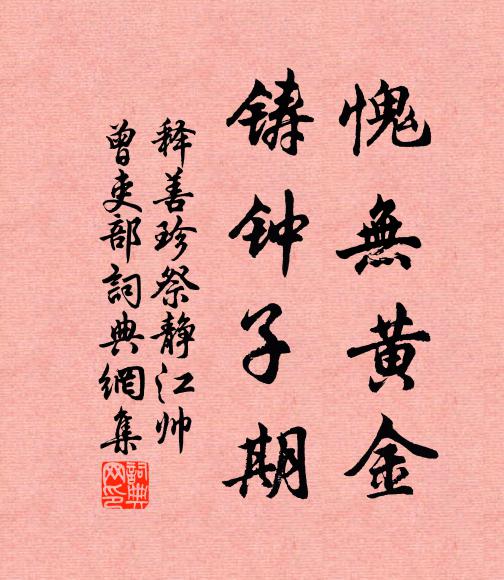 愧無黄金
铸钟子期
释善珍祭静江帅
曾吏部詞典網集
詞典网印